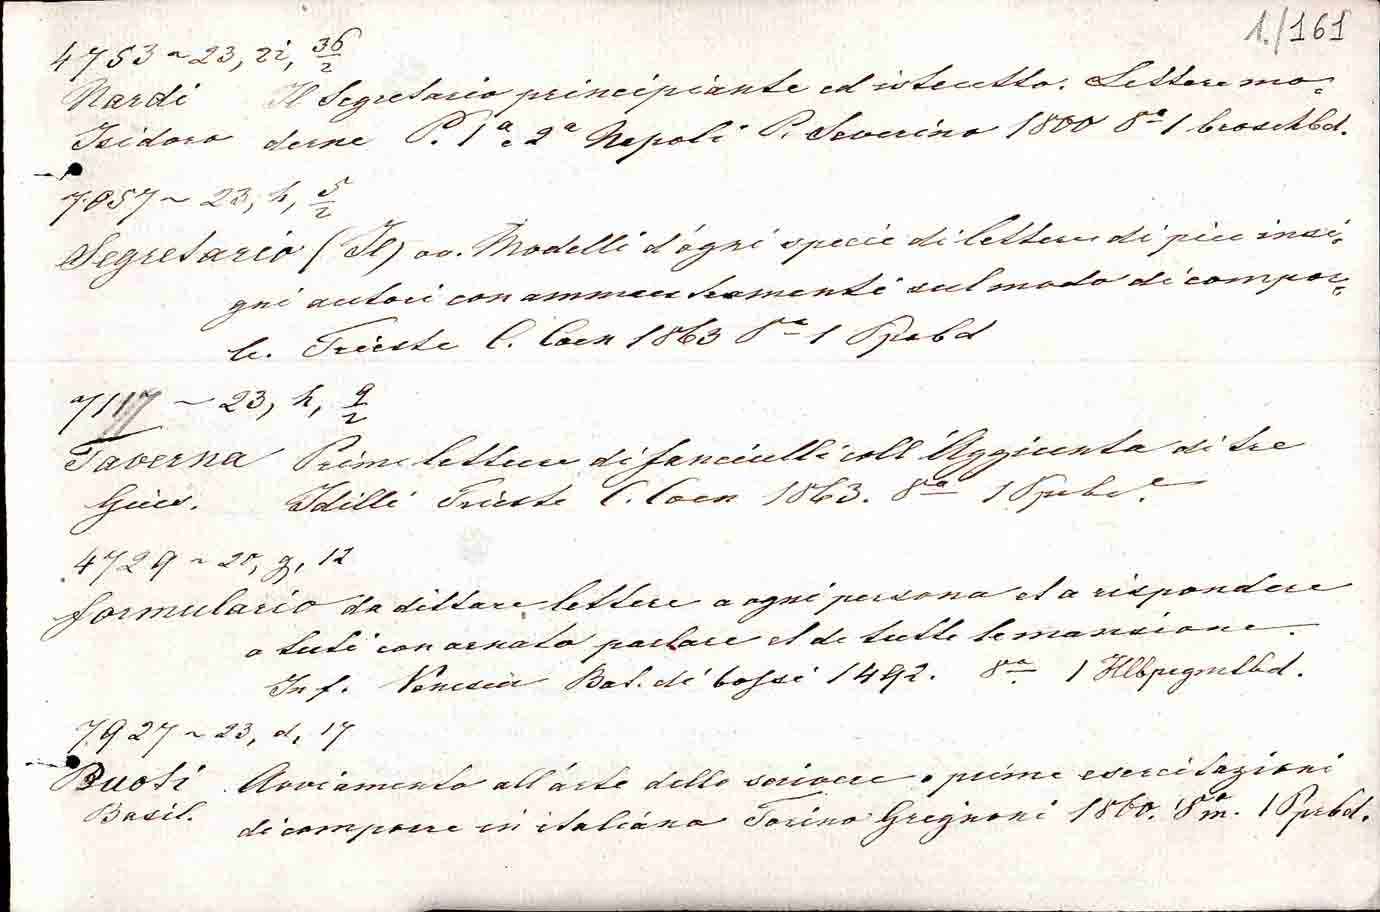 1./161
4753 ~ 23, zi, 36/2
Nardi Il Segretario principiante ed istrecetto. Lettere mo-
Isidoro derne P. 1a e 2a Napoli P. Severino 1800 8o 1 broschbd.
7057 ~ 23, h, 5/2
Segretario (Il) ov. Modelli d'ogni specie di lettere di piu insi-
gni autori con ammaestramenti sul modo di compor-
le. Trieste C. Coen 1863 8o 1 Pprbd
7117 ~ 23, h, 9/2
Taverna Prime lettere di fanciulli coll' Aggiunta di tre
Gius. Idilli Trieste C. Coen 1863. 8o 1 Pprbd.
4729 ~ 20, g, 12
formulario da dittare lettere a ogni persona et a rispondere
a tuti con ornato parlare et de tutte le mansione.
In f. Venezia Bat. di bossi 1492. 8o. 1 Hlbpergmtbd.
7927 ~ 23, d, 17
Buoti Avviamento all' arte dello scrivere o prime esercitazioni
Basil. di comporre in italiano Torino Grignoni 1860. 8o m. 1 Pprbd.